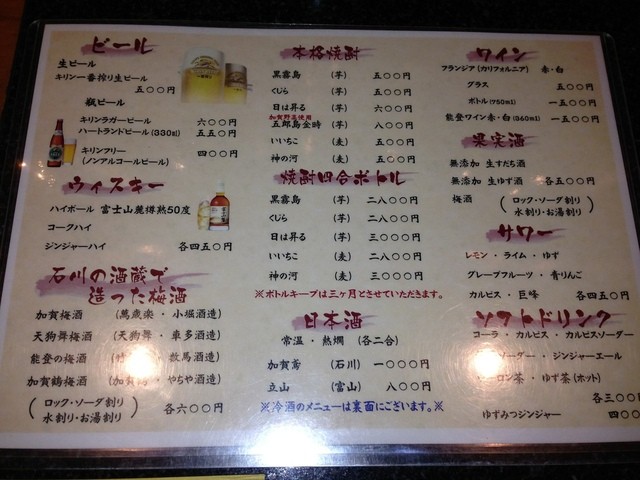 ビール
生ビール
キリン一番搾り生ビール
五〇〇円
瓶ビール
キリンラガービール 六〇〇円
ハートランドビール(330ml) 五五〇円
キリンフリー
(ノンアルコールビール) 四〇〇円
ウィスキー
ハイボール 富士山麓樽熟50度
コークハイ
ジンジャーハイ 各四五〇円
石川の酒蔵で
造った梅酒
加賀梅酒 (萬歳楽・小堀酒造)
天狗舞梅酒 (天狗舞・車多酒造)
能登の梅酒 ・数馬酒造)
加賀鶴梅酒 (加賀 ・やちや酒造)
(ロック・ソーダ割り
水割り・お湯割り) 各六〇〇円
本格焼酎
黒霧島 (芋) 五〇〇円
くじら (芋) 五〇〇円
日は昇る (芋) 六〇〇円
加賀野菜使用
五郎島金時 (芋) 八〇〇円
いいちこ (麦) 五〇〇円
神の河 (麦) 五〇〇円
焼酎四合ボトル
黒霧島 (芋) 二八〇〇円
くじら (芋) 二八〇〇円
日は昇る (芋) 三〇〇〇円
いいちこ (麦) 二八〇〇円
神の河 (麦) 三〇〇〇円
※ボトルキープは三ヶ月とさせていただきます。
日本酒
常温・熱燗 (各二合)
加賀鳶 (石川) 一〇〇〇円
立山 (富山) 八〇〇円
※冷酒のメニューは裏面にございます。※
ワイン
フランジア(カリフォルニア) 赤・白
グラス 五〇〇円
ボトル(750ml) 一五〇〇円
能登ワイン赤・白(360ml) 一五〇〇円
果実酒
無添加 生すだち酒
無添加 生ゆず酒 各五〇〇円
梅酒 (ロック・ソーダ割り
水割り・お湯割り)
サワー
レモン・ライム・ゆず
グレープフルーツ・青りんご
カルピス・巨峰 各四五〇円
ソフトドリンク
コーラ・カルピス・カルピスソーダー
ソーダー・ジンジャーエール
ーロン茶・ゆず茶(ホット)
各三〇〇
ゆずみつジンジャー 四〇〇